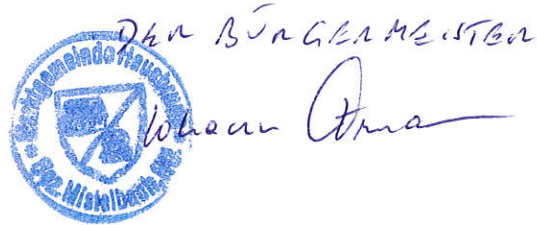 DER BÜRGERMEISTER
Marktgemeinde Hausbrunn
Johann
* Bez. Mistelbach, NÖ *